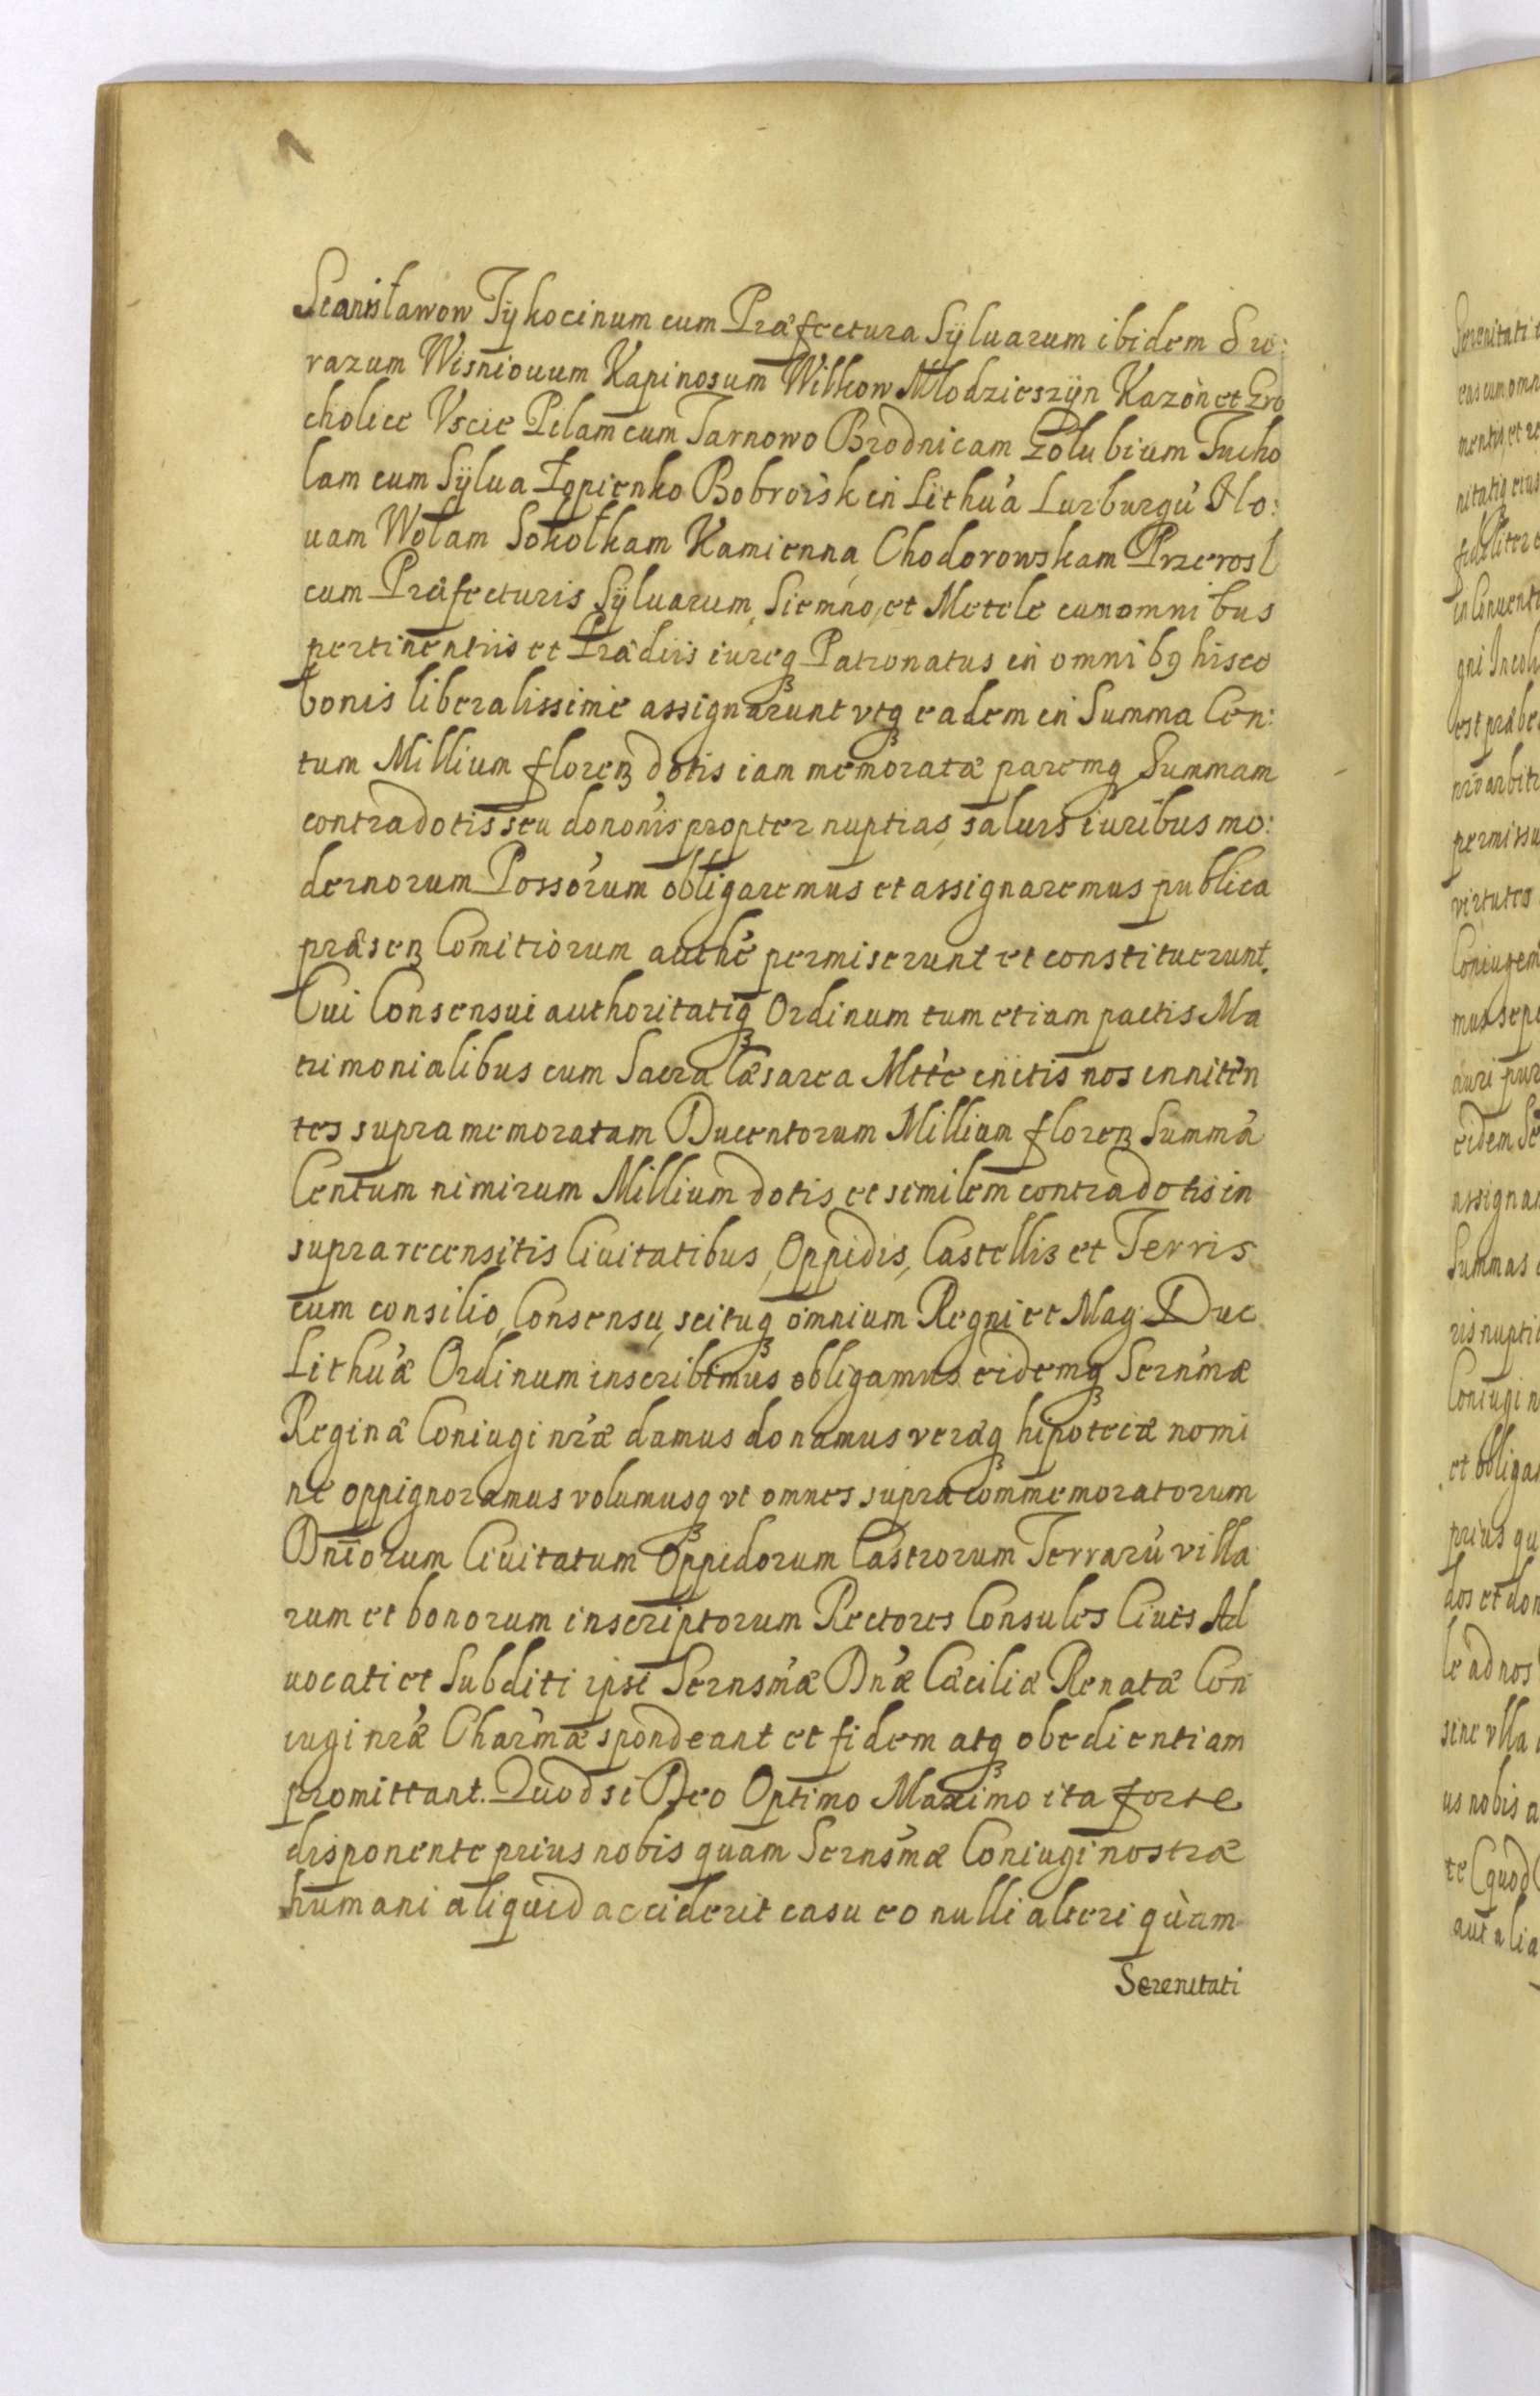 Stanisławow Tÿkocinum cum Præfectura Sÿluarum ibidem Su:
razum Wisniouum Kapinosum Wilkow Młodzieszÿn Kazon et Gro
cholice Vscie Pilam cum Tarnowo Brodnicam Golubium Tucho
lam cum Sÿlua Łopienko Bobroisk in Lithu'a Iurburgu' No:
uam Wolam Sokołkam Kamienna, Chodorowskam Przerosl
cum Præfecturis Sÿluarum, Siemno, et Metele cum omnibus
pertinentiis et Prædiis iureq3 Patronatus in omnib9 hisce
bonis liberalissime assignarunt vtq3 eadem in Summa Cen:
tum Millium floren3 dotis iam memoratæ paremq3 Summam
contradotis seu donõnis propter nuptias, saluis iuribus mo:
dernorum Possõrum obligaremus et assignaremus publica
præsen3 Comitiorum authẽ permiserunt et constituerunt.
Cui Consensui authoritatiq3 Ordinum tum etiam pactis Ma
trimonialibus cum Sacra Cæsarea Mtte initis nos inniten
tes supra memoratam Ducentorum Millium floren3 Summã
Centum nimirum Millium dotis, et similem contradotis in
supra recensitis Ciuitatibus, Oppidis, Castellis et Terris
cum consilio, Consensu, scituq3 omnium Regni et Mag: Duc
Lithu'æ Ordinum inscribimus obligamus eidemq3 Sern'mæ
Reginæ Coniugi nr'æ damus donamus veræq3 hipotecæ nomi
ne oppignoramus volumusq3 vt omnes supra commemoratorum
Dn̄iorum Ciuitatum Oppidorum Castrorum Terraru' villa
rum et bonorum inscriptorum Rectores Consules Ciues Ad
uocati et Subditi ipsi Serns'mæ Dn'æ Cæciliæ Renatæ Con
iugi nr'æ Char'mæ spondeant et fidem atq3 obedientiam
promittant. Quod si Deo Optimo Maximo ita forte
disponente prius nobis quam Serns'mæ Coniugi nostræ
humani aliquid acciderit casu eo nulli alteri quàm
Serenitati